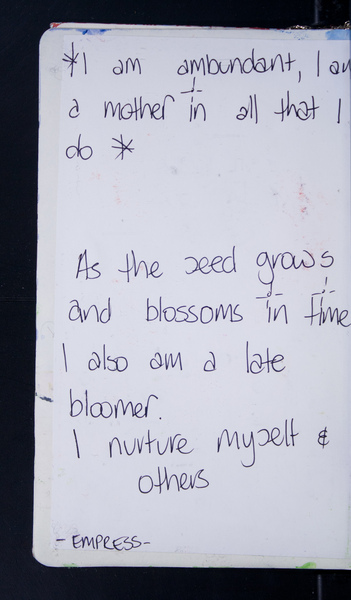 *I am ambundant, I am
a mother in all that I
do *
As the seed grows
and blossoms in time
I also am a late
bloomer.
I nurture myself &
others
- EMPRESS -